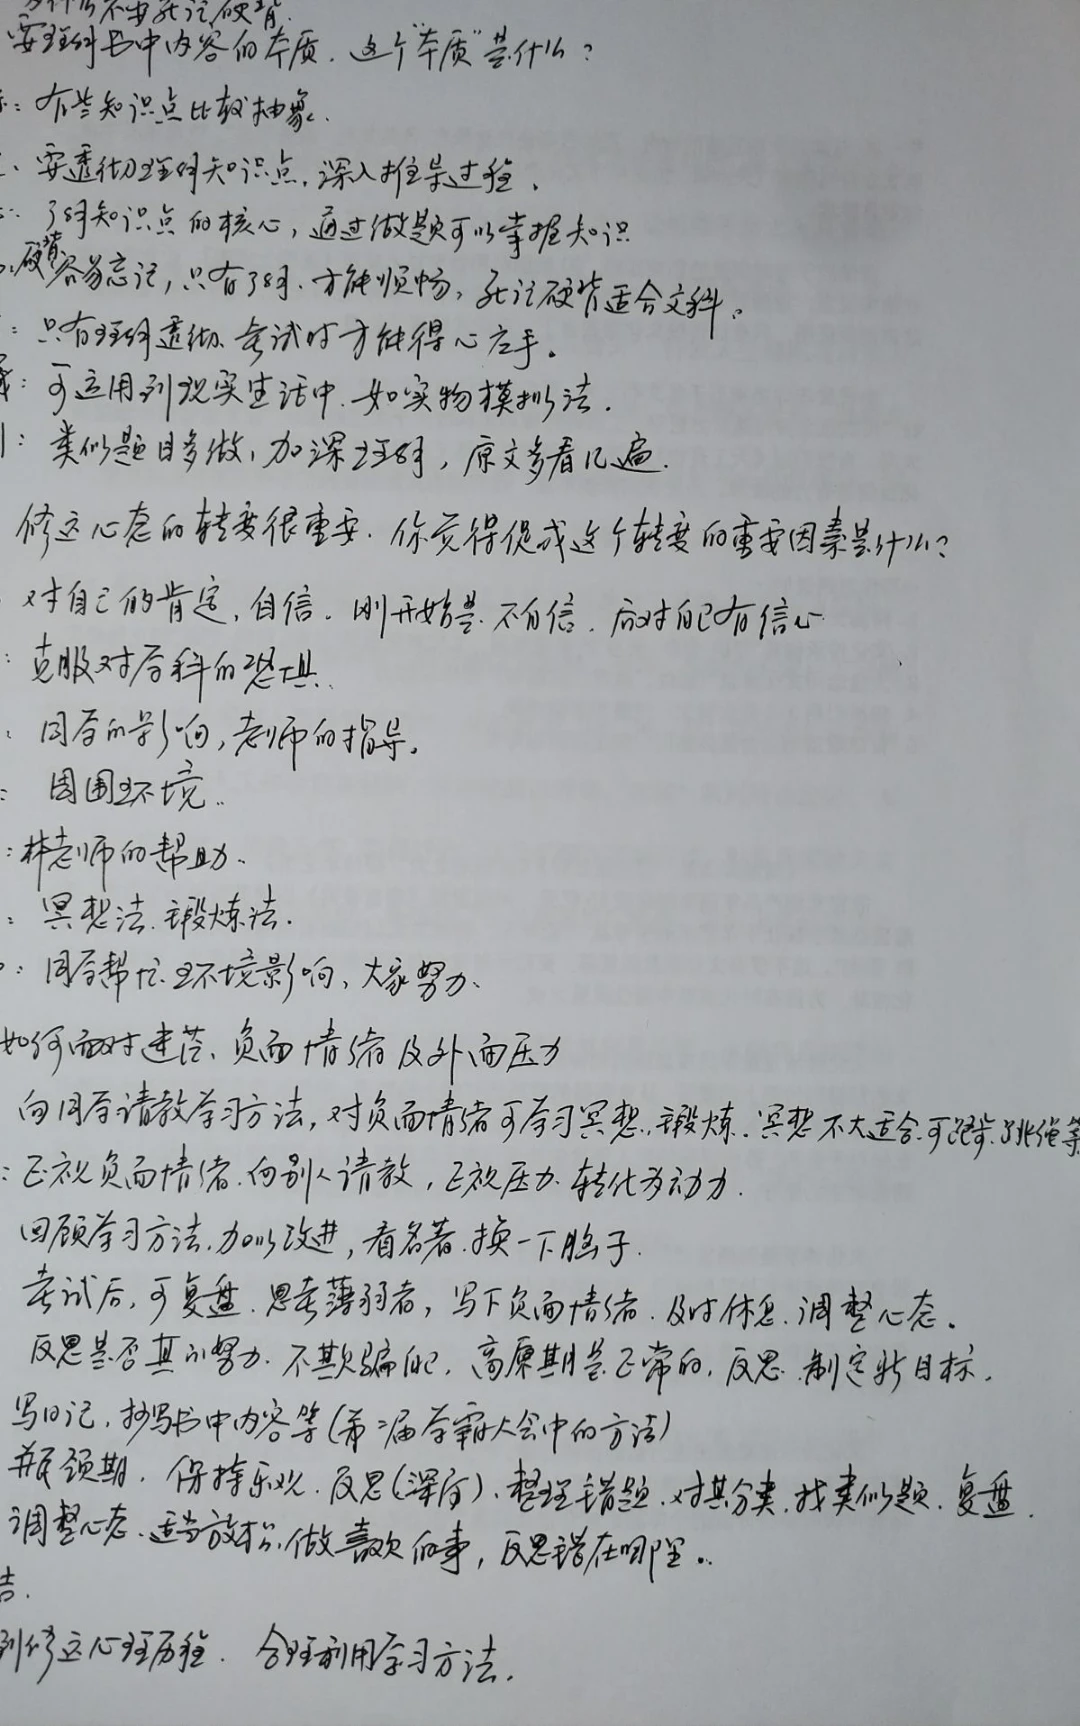 为什么不要死记硬背.
要理解书中内容的本质. 这个"本质"是什么?
: 有些知识点比较抽象.
: 要透彻理解知识点, 深入推导过程.
: 了解知识点的核心, 通过做题可以掌握知识
: 硬背容易忘记, 只有了解. 才能顺畅, 死记硬背适合文科.
: 只有理解透彻. 考试时才能得心应手.
: 可运用到现实生活中. 如实物模拟法.
: 类似题目多做, 加深理解, 原文多看几遍.
修远心态的转变很重要. 你觉得促成这个转变的重要因素是什么?
对自己的肯定, 自信. 刚开始是不自信. 应对自己有信心
: 克服对学科的恐惧.
: 同学的影响, 老师的指导.
: 周围环境.
: 林老师的帮助.
: 冥想法. 锻炼法.
: 同学帮忙. 环境影响, 大家努力.
如何面对迷茫、负面情绪及外面压力
向同学请教学习方法, 对负面情绪可学习冥想. 锻炼. 冥想不太适合. 可跑步. 跳绳等
: 正视负面情绪. 向别人请教, 正视压力. 转化为动力.
回顾学习方法. 加以改进, 看名著. 换一下脑子.
考试后, 可复盘. 思考薄弱者, 写下负面情绪. 及时休息. 调整心态.
反思是否真的努力. 不欺骗自己, 高原期是正常的, 反思. 制定新目标.
写日记, 抄写书中内容等(第二届学霸大会中的方法)
瓶颈期. 保持乐观. 反思(深夜). 整理错题. 对其分类. 找类似题. 复盘.
调整心态. 适当放松. 做喜欢的事, 反思错在哪里.
结.
到修远心理历程. 合理利用学习方法.